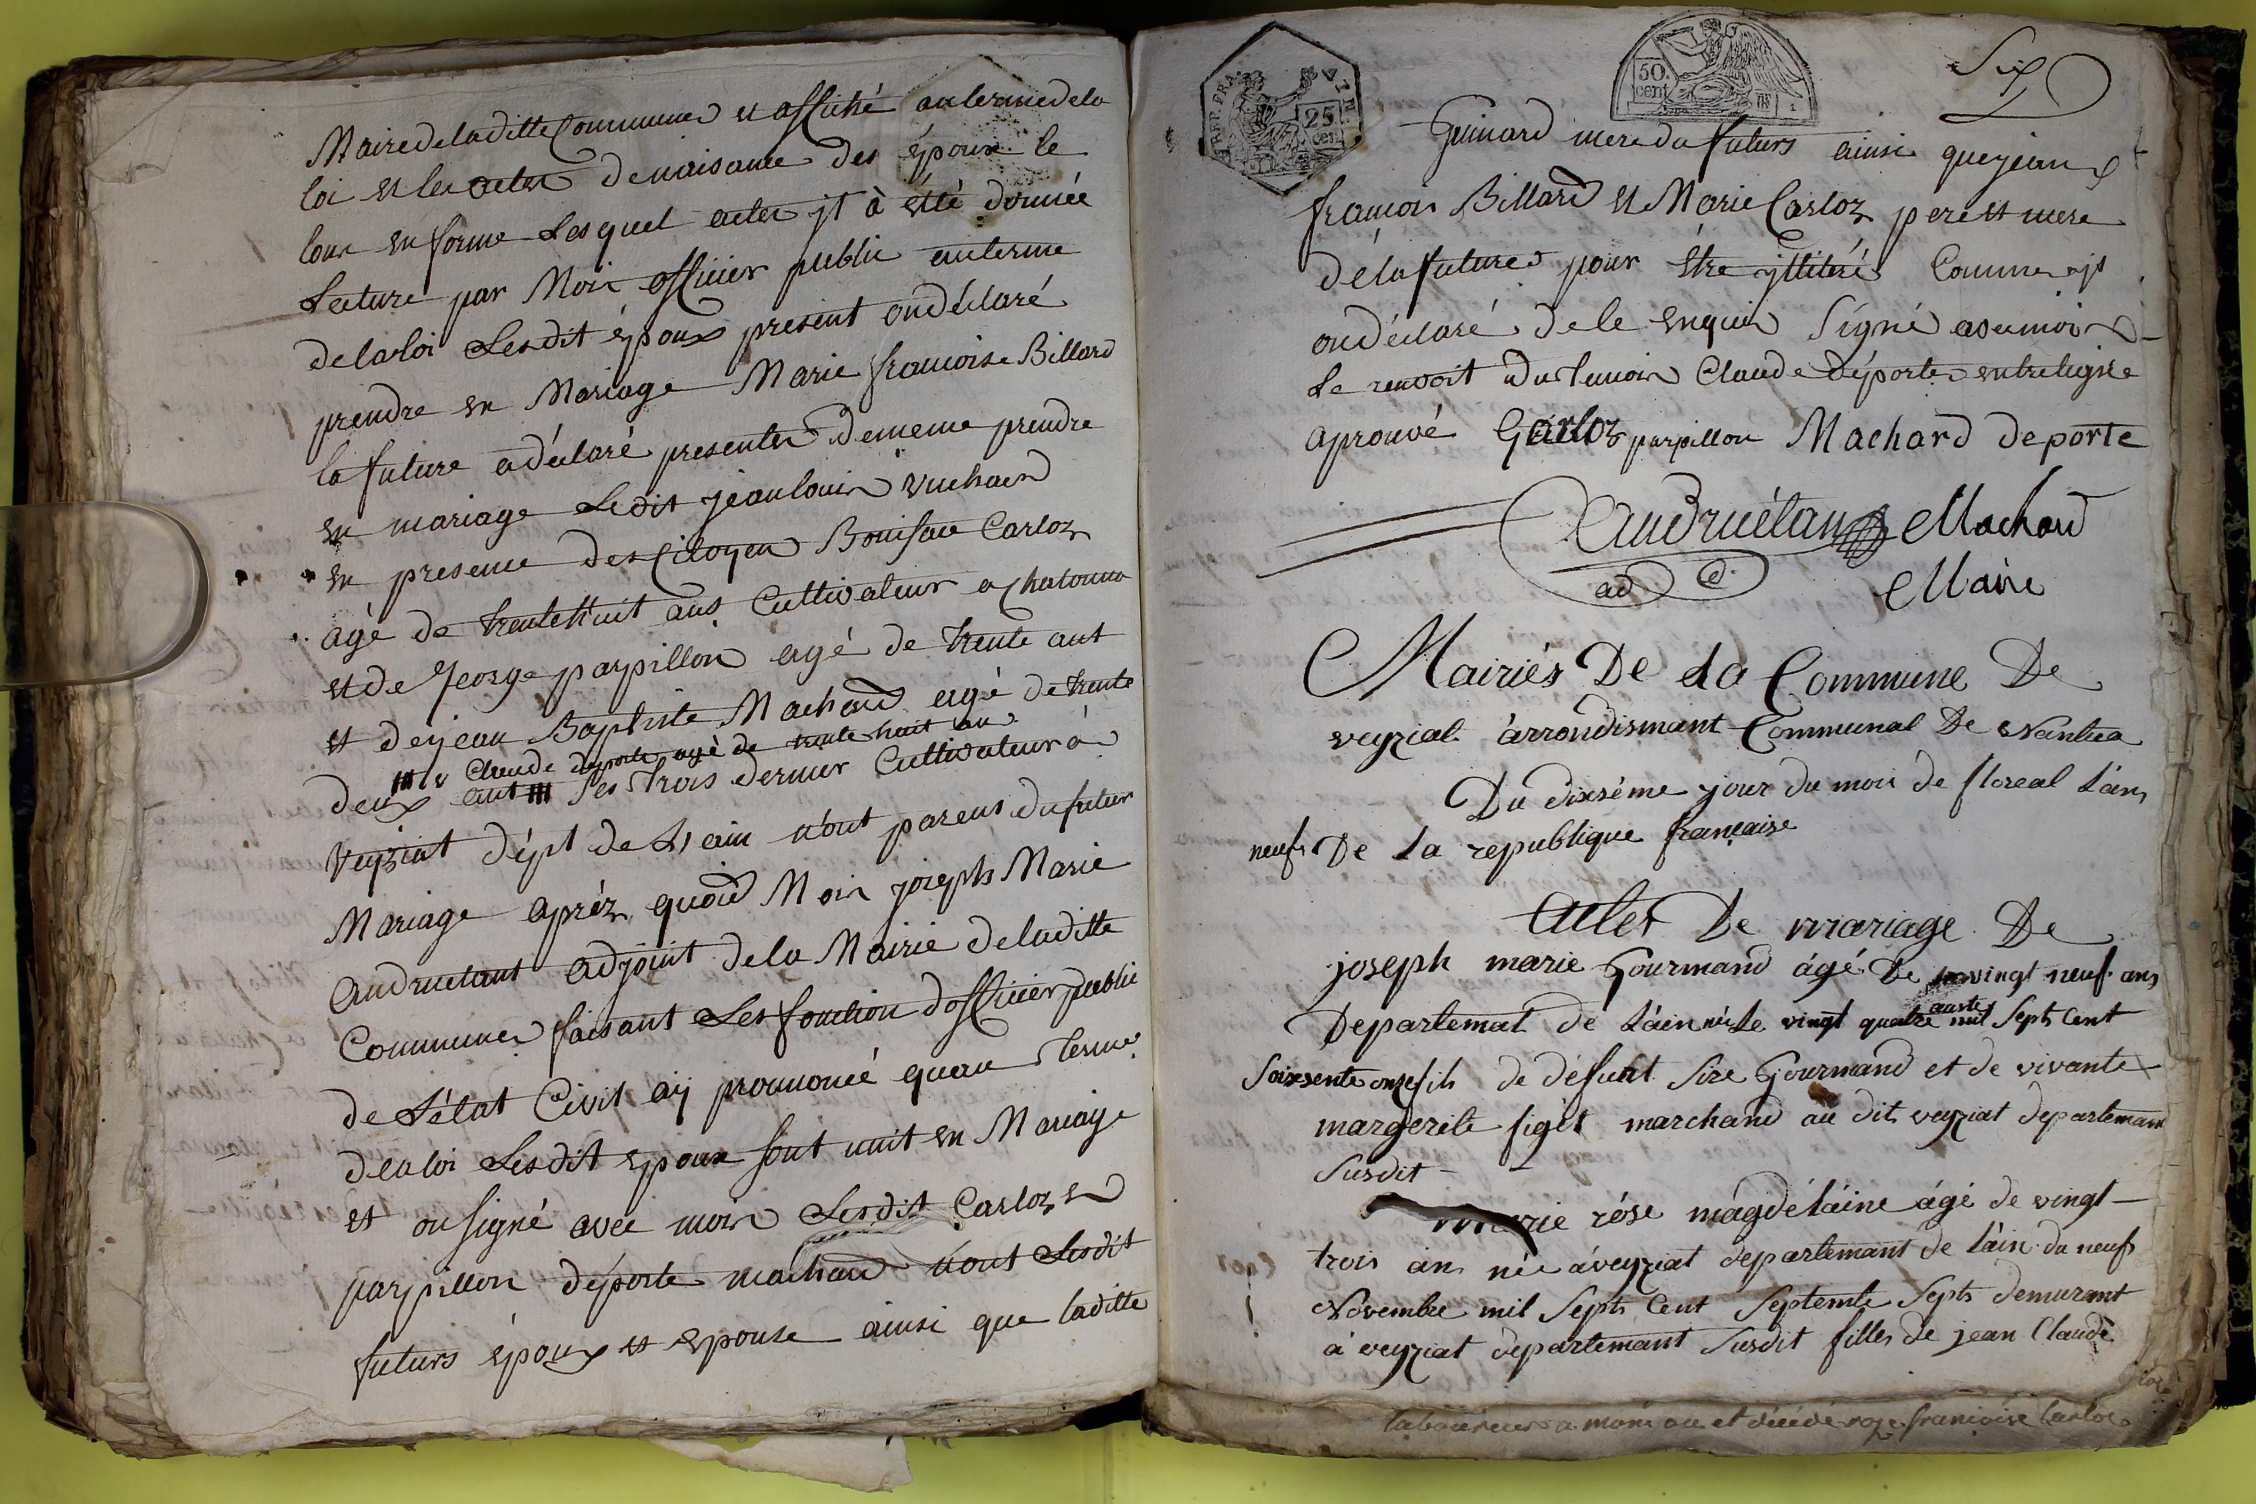 Maire de laditte Commune et affiché au terme de la
loi et les actes de naisance des époux le
tous en forme Lesquel actes jl à étté donnée
Lecture par Moi officier public au terme
de la loi Lesdit époux present on déclaré
prendre en Mariage Marie francoise Billard
la future a déclaré presente de meme prendre
en mariage Ledit jean louis vuchard
en presence des Citoyen Boniface Carloz
agé de trente huit ans Cultivateur a Chatonna
et de George parpillon agé de trente ant
et de jean Baptiste Machard agé de trente
Claude deporte agé de trente huit an
deux ant Les trois dernier Cultivateur à
Veyziat dépt de L'ain n'ont parens du futur
Mariage aprèz quoid Moi joseph Marie
Andruétant adjoint de la Mairie de laditte
Commune faisant Les fonction d'officier public
de L'état Civil aÿ prononcé qu'au terme
de la loi Lesdit epoux sont unit en Mariage
et on signé avec moi Lesdit Carloz et
parpillon déporte machard n'ont Lesdit
futurs époux et epouse ainsi que laditte
25 cent
50 cent
Six
Guinard mere du futurs ainsi que jean
francois Billard et Marie Carloz pere et mere
de la future pour être jllitéré Comme jls
on déclaré de le enquis Signé avec moi
Le renvoit du temoin Claude déporte entreligne
aprouvé Carloz parpillon Machard deporte
Andruétan Machard
ad Maire
Mairiés De La Commune De
veyziat arrondismant Communal De Nantua
Du dixséme jour du mois de floreal L'an
neuf De La republique française
Actes De mariage De
joseph marie Gourmand ágé De vingt neuf ans
Departemat de L'ain née Le vingt quatre
auste
mil Septs Cent
Soixsente onze fils de défunt Sire Gourmand et de vivante
margerite figet marchand au dit veyziat departemant
Susdit
Marie róse magdélaine ágé de vingt
trois an née áveyziat departemant de L'ain du neuf
Novembre mil Septs Cent Septente Septs demurant
a veyziat departemant Susdit filles de jean Claude
laboureur a et décédé roze francoise Carloz